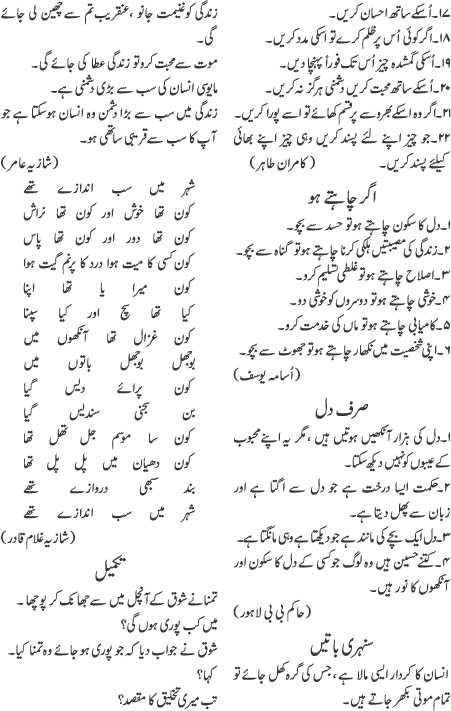 ۱۷۔ اُسکے ساتھ احسان کریں۔
۱۸۔ اگر کوئی اُس پر ظلم کرے تو اسکی مدد کریں۔
۱۹۔ اُسکی گمشدہ چیز اُس تک فوراً پہنچا دیں۔
۲۰۔ اُسکے ساتھ محبت کریں دشمنی ہرگز نہ کریں۔
۲۱۔ اگر وہ اسکے بھروسے پر قسم کھائے تو اسے پورا کریں۔
۲۲۔ جو چیز اپنے لئے پسند کریں وہی چیز اپنے بھائی
کیلئے پسند کریں۔ (کامران طاہر)
اگر چاہتے ہو
۱۔ دل کا سکون چاہتے ہو تو حسد سے بچو۔
۲۔ زندگی کی مصیبتیں ہلکی کرنا چاہتے ہو تو گناہ سے بچو۔
۳۔ اصلاح چاہتے ہو تو غلطی تسلیم کرو۔
۴۔ خوشی چاہتے ہو تو دوسروں کو خوشی دو۔
۵۔ کامیابی چاہتے ہو تو ماں کی خدمت کرو۔
۶۔ اپنی شخصیت میں نکھار چاہتے ہو تو جھوٹ سے بچو۔
(اُسامہ یوسف)
صرف دل
۱۔ دل کی ہزار آنکھیں ہوتیں ہیں، مگر یہ اپنے محبوب
کے عیبوں کو نہیں دیکھ سکتا۔
۲۔ حکمت ایسا درخت ہے جو دل سے اگتا ہے اور
زبان سے پھل دیتا ہے۔
۳۔ دل ایک بچے کی مانند ہے جو دیکھتا ہے وہی مانگتا ہے۔
۴۔ کتنے حسین ہیں وہ لوگ جو کسی کے دل کا سکون اور
آنکھوں کا نور ہیں۔
(حاکم بی بی لاہور)
سنہری باتیں
انسان کا کردار ایسی مالا ہے، جس کی گرہ کھل جائے تو
تمام موتی بکھر جاتے ہیں۔
زندگی کو غنیمت جانو، عنقریب تم سے چھین لی جائے
گی۔
موت سے محبت کرو تو زندگی عطا کی جائے گی۔
مایوسی انسان کی سب سے بڑی دشمنی ہے۔
زندگی میں سب سے بڑا دشمن وہ انسان ہو سکتا ہے جو
آپ کا سب سے قریبی ساتھی ہو۔
(شازیہ عامر)
شہر میں سب اندازے تھے
کون تھا خوش اور کون تھا نراش
کون تھا دور اور کون تھا پاس
کون کسی کا میت ہوا درد کا پرنم گیت ہوا
کون میرا یا تھا اپنا
کیا تھا سچ اور کیا سپنا
کون غزال تھا آنکھوں میں
بوجھل بوجھل باتوں میں
کون پرائے دیس گیا
بن سجنی سندیس گیا
کون سا موسم جل تھل تھا
کون دھیان میں پل پل تھا
بند سبھی دروازے تھے
شہر میں سب اندازے تھے
(شازیہ غلام قادر)
تکمیل
تمنا نے شوق کے آنچل میں سے جھانک کر پوچھا۔
میں کب پوری ہوں گی؟
شوق نے جواب دیا کہ جو پوری ہو جائے وہ تمنا کیا۔
کہا؟
تب میری تخلیق کا مقصد؟